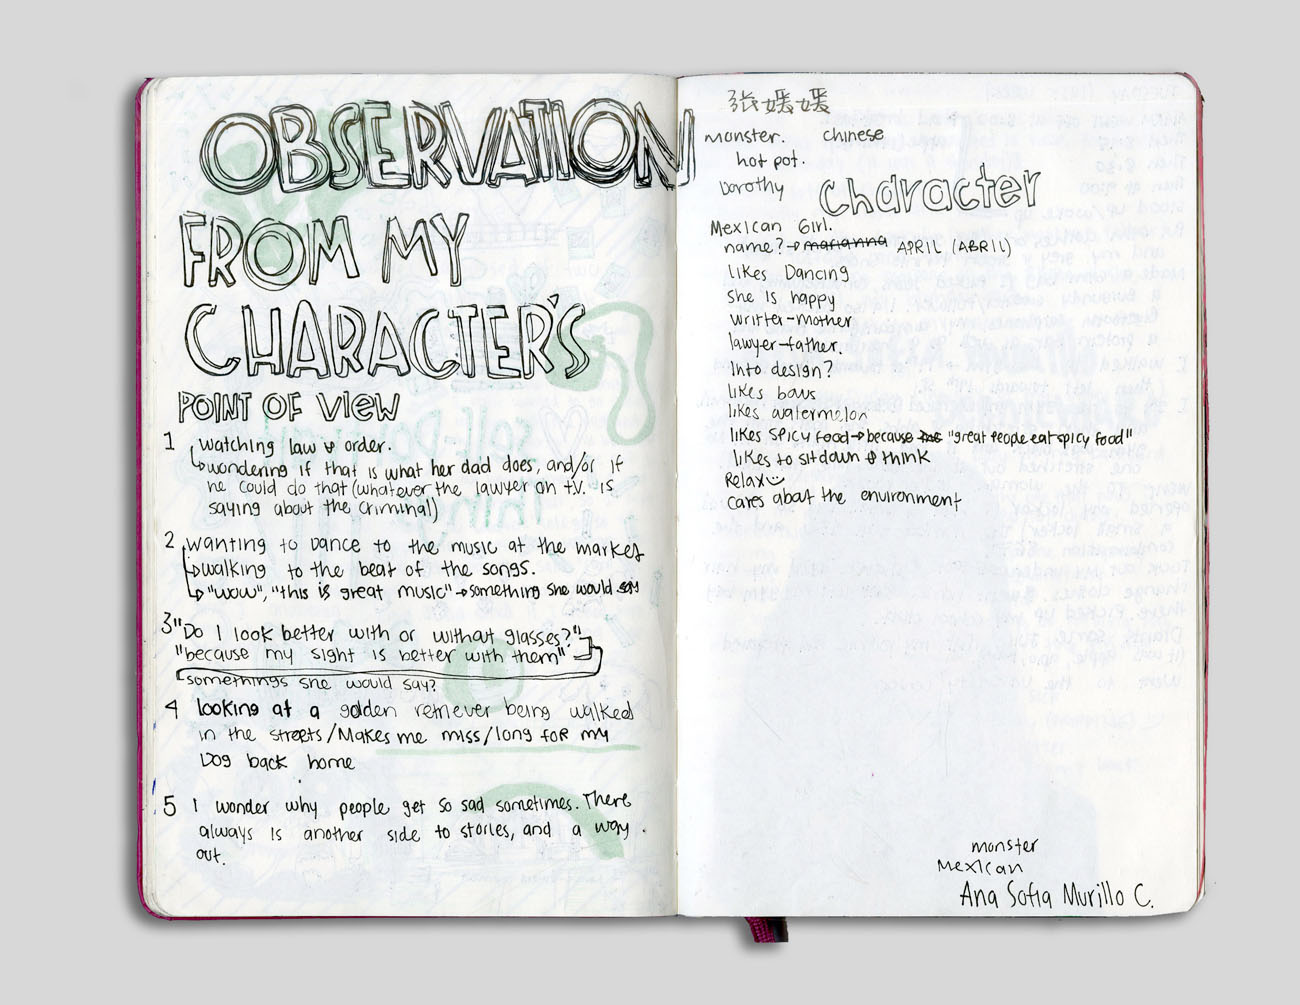 OBSERVATION
FROM MY
CHARACTER'S
POINT OF VIEW
1 watching law & order.
wondering if that is what her dad does, and/or if
he could do that (whatever the lawyer on t.v. is
saying about the criminal)
2 wanting to dance to the music at the market
walking to the beat of the songs.
"wow", "this is great music" → something she would say
3 "Do I look better with or without glasses?"
"because my sight is better with them"
somethings she would say?
4 looking at a golden retriever being walked
in the streets/Makes me miss/long for my
Dog back home
5 I wonder why people get so sad sometimes. There
always is another side to stories, and a way
out.
张媛媛
monster. chinese
hot pot.
Dorothy
Character
Mexican Girl.
name? → marianna APRIL (ABRIL)
likes Dancing
she is happy
writter-mother
lawyer-father.
Into design?
likes bows
likes watermelon
likes spicy food → because "great people eat spicy food"
likes to sit down & think
Relax
cares about the environment
monster
Mexican
Ana Sofia Murillo C.